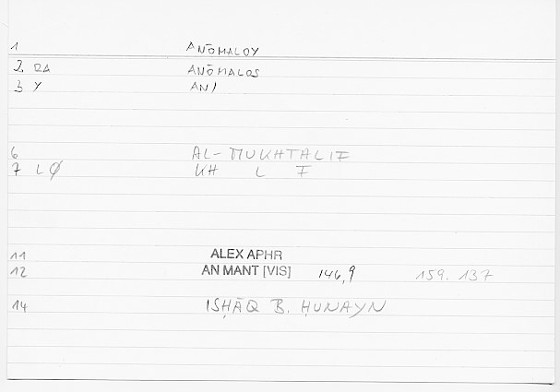 1 ANŌMALOY
2 DA ANŌMALOS
3 Y AN/
6 AL-MUKHTALIF
7 LØ KH L F
11 ALEX APHR
12 AN MANT [VIS] 146,9 159. 137
14 ISḤĀQ B. ḤUNAYN